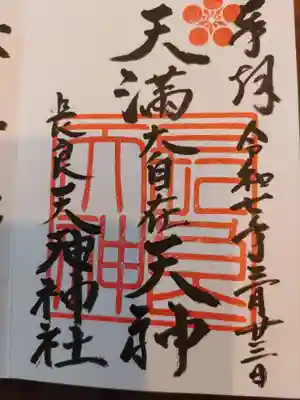 奉拝 令和七年三月廿三日
天満大自在天神
長良天神神社